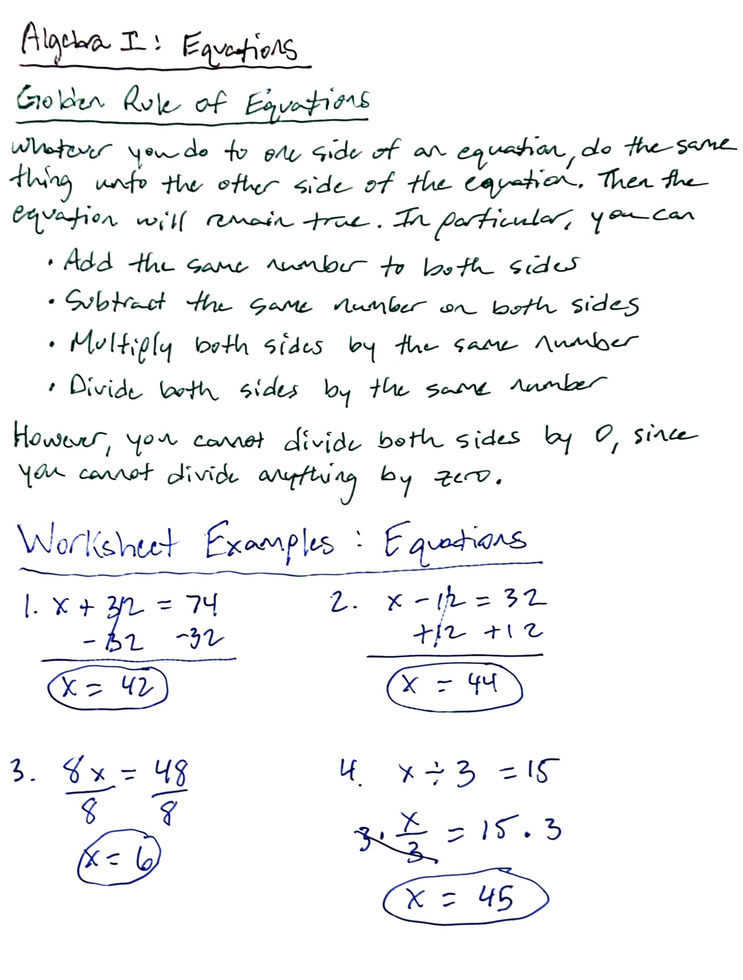 Algebra I: Equations
Golden Rule of Equations
Whatever you do to one side of an equation, do the same
thing unto the other side of the equation. Then the
equation will remain true. In particular, you can
• Add the same number to both sides
• Subtract the same number on both sides
• Multiply both sides by the same number
• Divide both sides by the same number
However, you cannot divide both sides by 0, since
you cannot divide anything by zero.
Worksheet Examples: Equations
1. x + 32 = 74
- 32 -32
x = 42
2. x - 12 = 32
+12 +12
x = 44
3. 8x = 48
8 8
x = 6
4. x ÷ 3 = 15
3 · x/3 = 15 · 3
x = 45